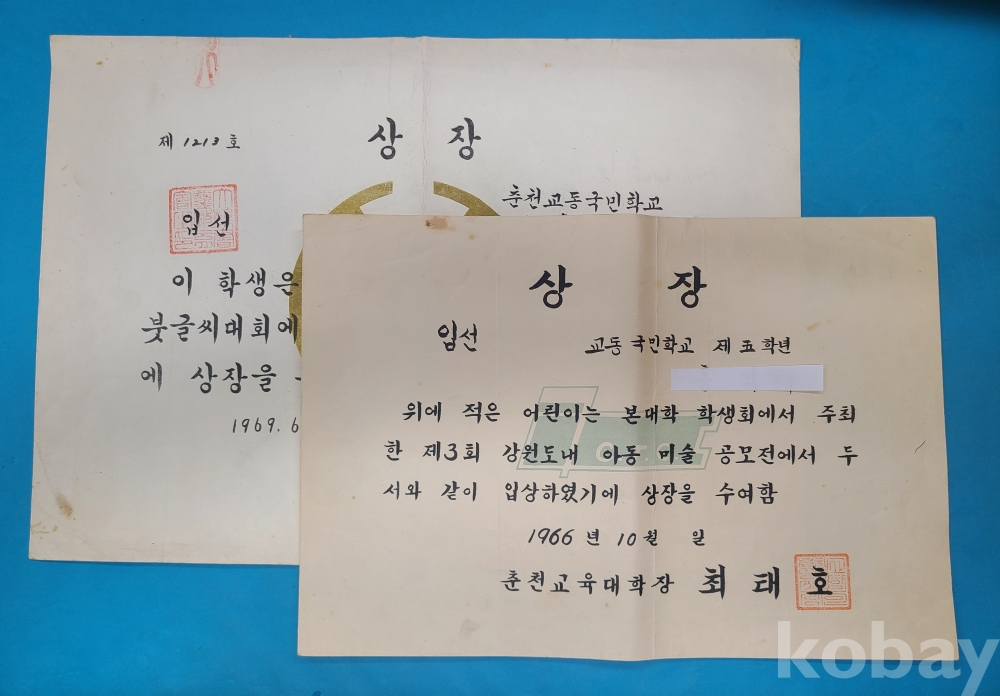 제 1213 호
상 장
춘천교동국민학교
입선
이 학생은
붓글씨대회에
에 상장을
1969. 6
상 장
입선
교동 국민학교 제 五 학년
위에 적은 어린이는 본대학 학생회에서 주최
한 제3회 강원도내 아동 미술 공모전에서 두
서와 같이 입상하였기에 상장을 수여함
1966 년 10 월 일
춘천교육대학장 최 태 호
kobay